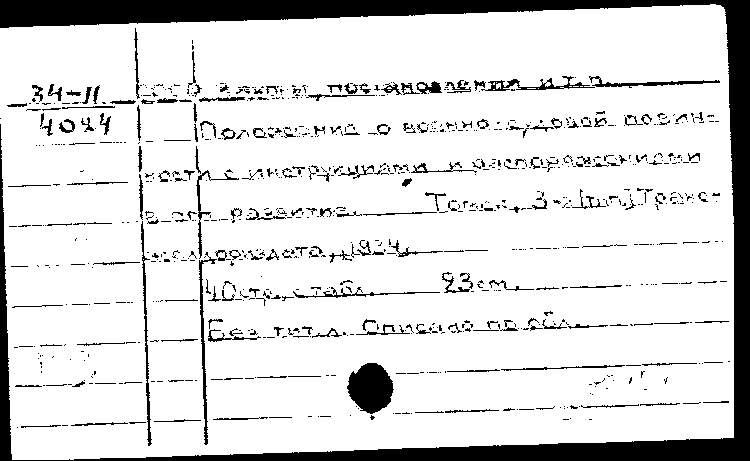 34-11
4024
СССР Законы, постановления и т.п.
Положение о военно-судовой повин-
ности с инструкциями и распоряжениями
в его развитие. Томск, 3-я [тип.] Транс-
желдориздата, 1934.
40стр., с табл. 23см.
Без тит.л. Описано по обл.